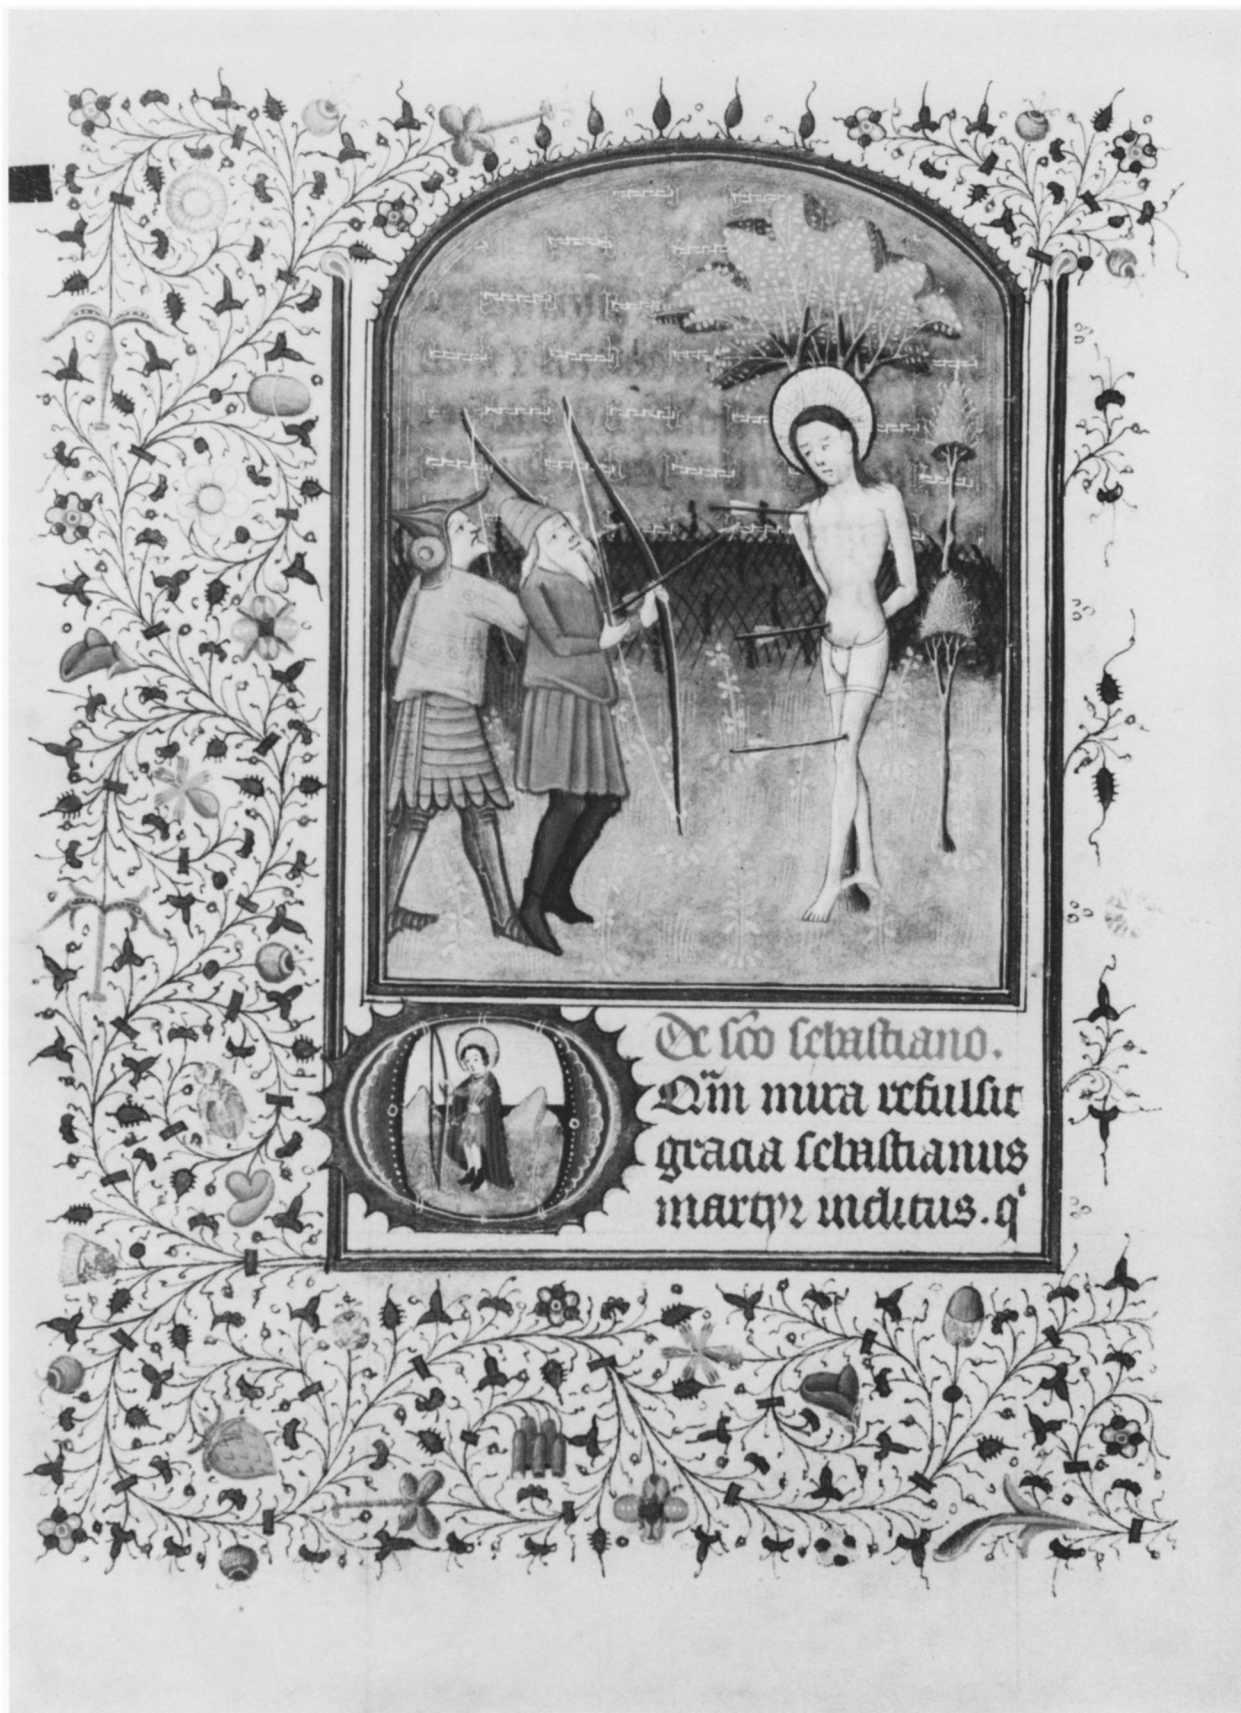 De sc̄o sebastiano.
O Qm̄ mira refulsit
gracia sebastianus
martyr inclitus. qͥ